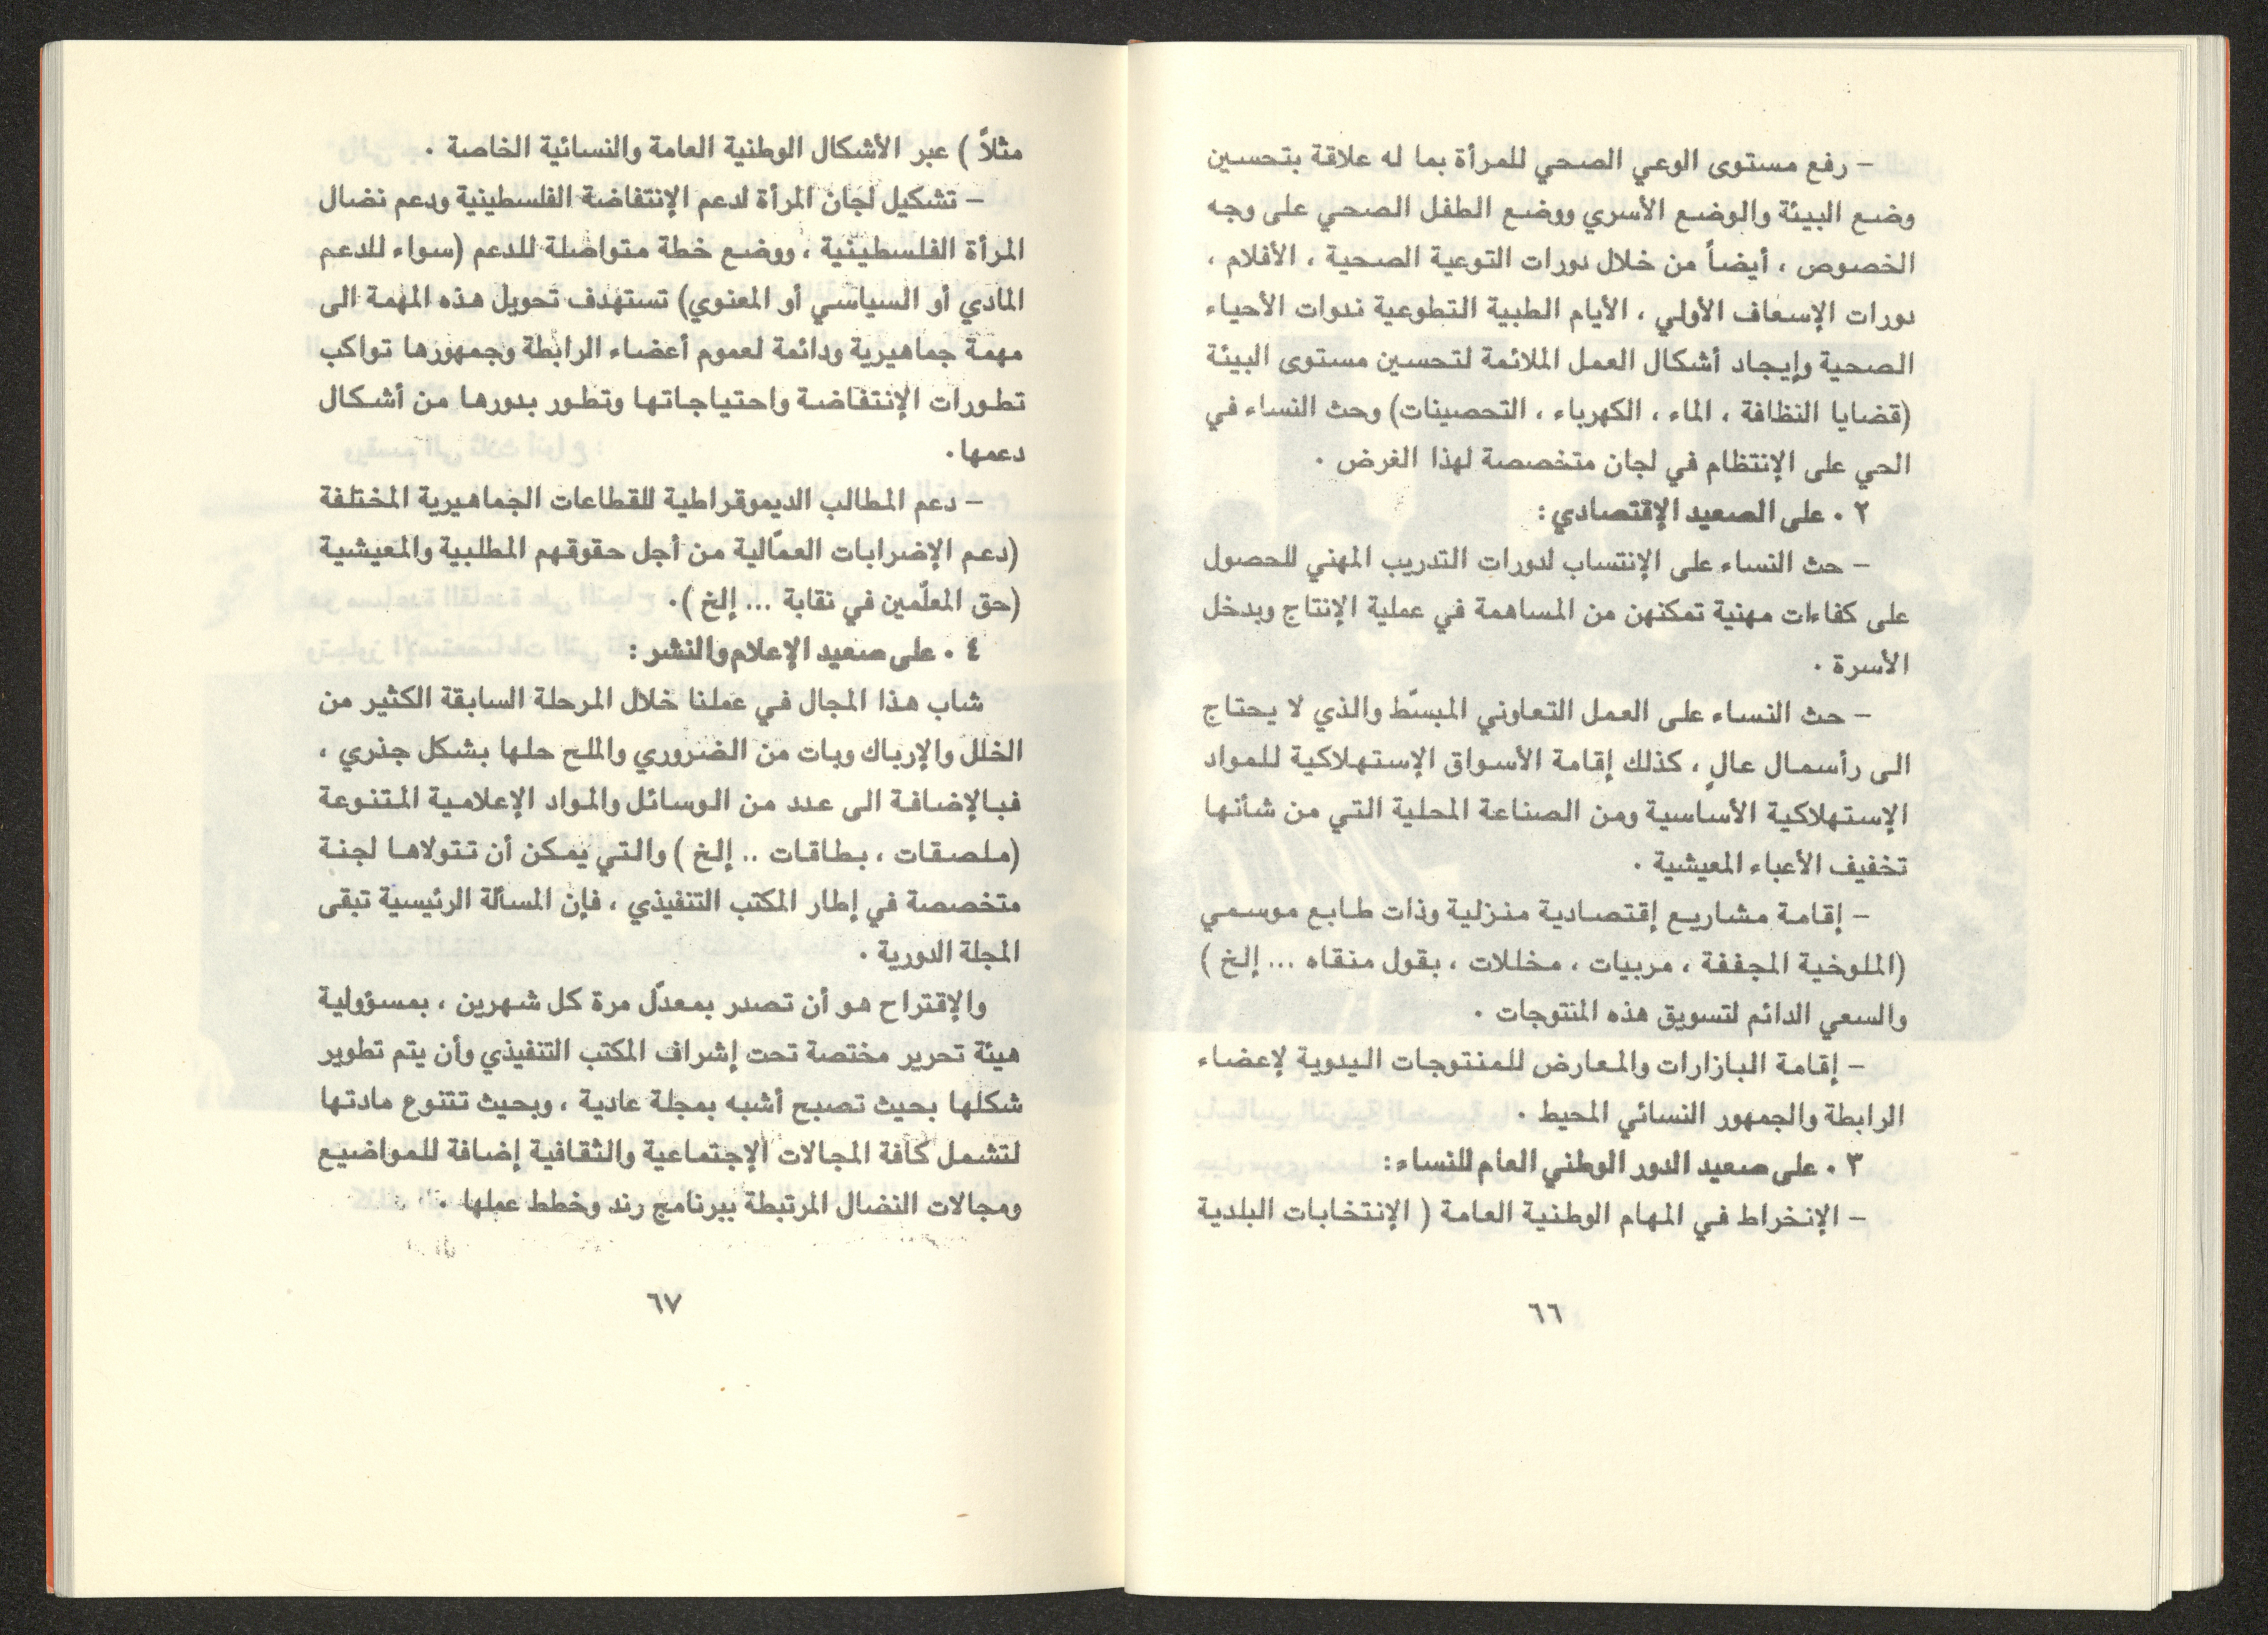 – رفع مستوى الوعي الصحي للمرأة بما له علاقة بتحسين
وضع البيئة والوضع الأسري ووضع الطفل الصحي على وجه
الخصوص ، أيضاً من خلال دورات التوعية الصحية ، الأفلام ،
دورات الإسعاف الأولي ، الأيام الطبية التطوعية ندوات الأحياء
الصحية وإيجاد أشكال العمل الملائمة لتحسين مستوى البيئة
(قضايا النظافة ، الماء ، الكهرباء ، التحصينات) وحث النساء في
الحي على الإنتظام في لجان متخصصة لهذا الغرض .
٢ . على الصعيد الإقتصادي :
– حث النساء على الإنتساب لدورات التدريب المهني للحصول
على كفاءات مهنية تمكنهن من المساهمة في عملية الإنتاج وبدخل
الأسرة .
– حث النساء على العمل التعاوني المبسّط والذي لا يحتاج
الى رأسمال عالٍ ، كذلك إقامة الأسواق الإستهلاكية للمواد
الإستهلاكية الأساسية ومن الصناعة المحلية التي من شأنها
تخفيف الأعباء المعيشية .
– إقامة مشاريع إقتصادية منزلية وذات طابع موسمي
(الملوخية المجففة ، مربيات ، مخللات ، بقول منقاه ... إلخ )
والسعي الدائم لتسويق هذه المنتوجات .
– إقامة البازارات والمعارض للمنتوجات اليدوية لإعضاء
الرابطة والجمهور النسائي المحيط .
٣ . على صعيد الدور الوطني العام للنساء :
– الإنخراط في المهام الوطنية العامة ( الإنتخابات البلدية
٦٦
مثلاً ) عبر الأشكال الوطنية العامة والنسائية الخاصة .
– تشكيل لجان المرأة لدعم الإنتفاضة الفلسطينية ودعم نضال
المرأة الفلسطينية ، ووضع خطة متواصلة للدعم (سواء للدعم
المادي أو السياسي أو المعنوي) تستهدف تحويل هذه المهمة الى
مهمة جماهيرية ودائمة لعموم أعضاء الرابطة وجمهورها تواكب
تطورات الإنتفاضة واحتياجاتها وتطور بدورها من أشكال
دعمها .
– دعم المطالب الديموقراطية للقطاعات الجماهيرية المختلفة
(دعم الإضرابات العمّالية من أجل حقوقهم المطلبية والمعيشية
(حق المعلّمين في نقابة ... إلخ ) .
٤ . على صعيد الإعلام والنشر :
شاب هذا المجال في عملنا خلال المرحلة السابقة الكثير من
الخلل والإرباك وبات من الضروري والملح حلها بشكل جذري ،
فبالإضافة الى عدد من الوسائل والمواد الإعلامية المتنوعة
(ملصقات ، بطاقات .. إلخ ) والتي يمكن أن تتولاها لجنة
متخصصة في إطار المكتب التنفيذي ، فإن المسألة الرئيسية تبقى
المجلة الدورية .
والإقتراح هو أن تصدر بمعدّل مرة كل شهرين ، بمسؤولية
هيئة تحرير مختصة تحت إشراف المكتب التنفيذي وأن يتم تطوير
شكلها بحيث تصبح أشبه بمجلة عادية ، وبحيث تتنوع مادتها
لتشمل كافة المجالات الإجتماعية والثقافية إضافة للمواضيع
ومجالات النضال المرتبطة ببرنامج رند وخطط عملها .
٦٧